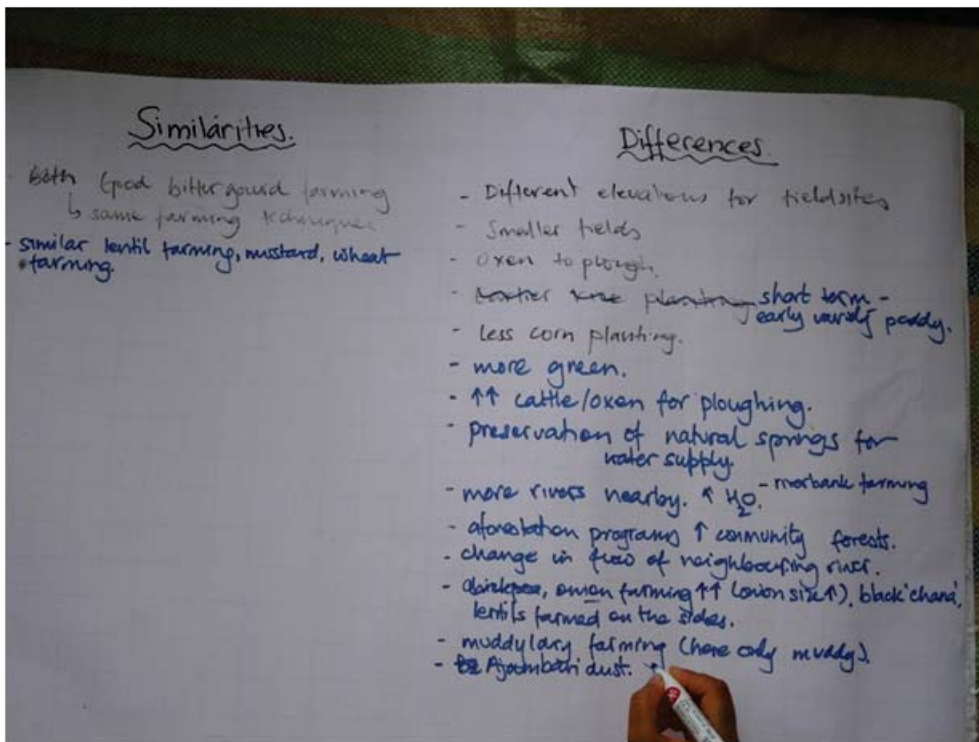 Similarities.
Both Good bitter gourd farming
↳ same farming techniques
- similar lentil farming, mustard, wheat
farming.
Differences.
- Different elevations for fieldsites
- Smaller fields
- Oxen to plough.
- planting short term -
early variety paddy.
- Less corn planting.
- more green.
- ↑↑ cattle/oxen for ploughing.
- preservation of natural springs for
water supply.
- more rivers nearby. ↑ H2O. - riverbank farming
- aforestation programs ↑ community forests.
- change in flow of neighbouring river.
- onion farming ↑↑ (onion size ↑), black 'chana',
lentils farmed on the sides.
- farming (here only muddy).
- dust.